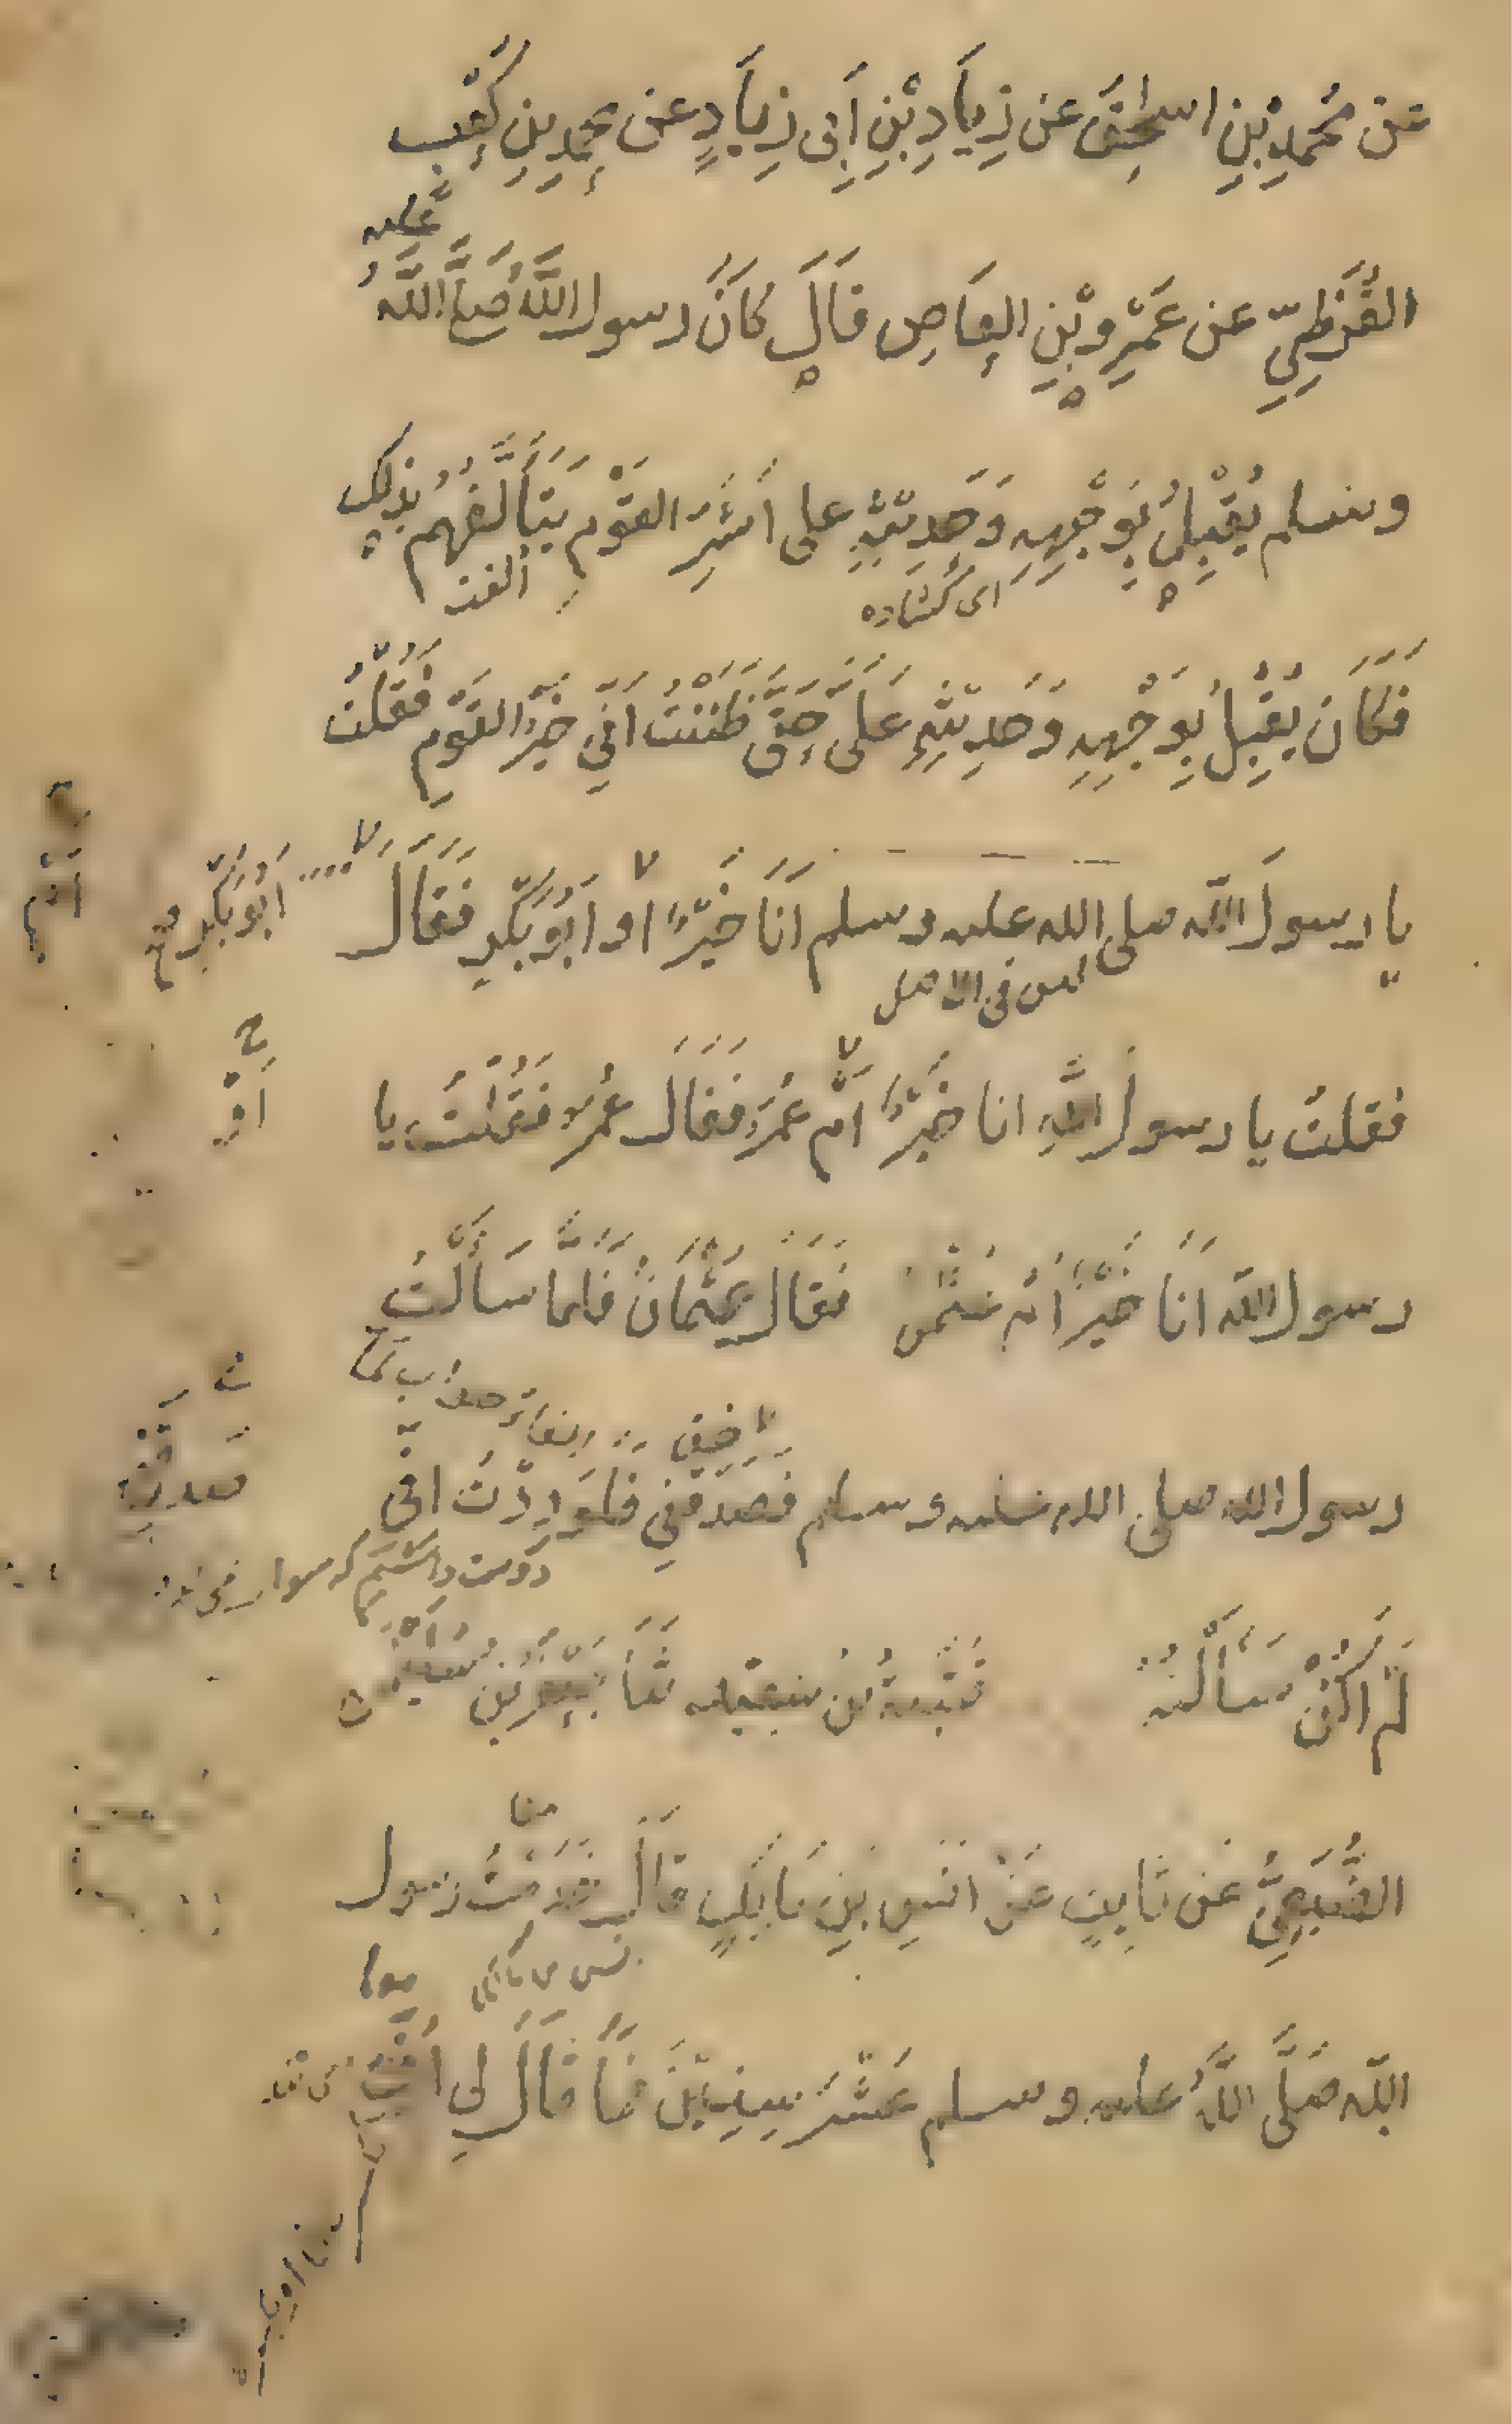 عن محمد بن اسحق عن زياد بن أبى زياد عن محمد بن كعب
عليه
القرظي عن عمرو بن العاص قال كان رسول الله صلى الله
وسلم يقبل بوجهه وحديثه على أشر القوم يتألفهم بذلك
الفت
اى كشاده
فكان يقبل بوجهه وحديثه على حتى ظننت اني خير القوم فقلت
يا رسول الله صلى الله عليه وسلم انا خير او ابو بكر فقال
ابو بكر
ليس في الاصل
فقلت يا رسول الله انا خير ام عمر فقال عمر فقلت يا
او
رسول الله انا خير ام عثمن فقال عثمان فلما سألت
رسول الله صلى الله عليه وسلم فصدقني فلوددت اني
دوست داشتم كه
لم اكن سألته قتيبة بن سعيد ثنا جعفر بن سليمن
الضبعي عن ثابت عن انس بن مالك قال خدمت رسول
الله صلى الله عليه وسلم عشر سنين فما قال لي أف